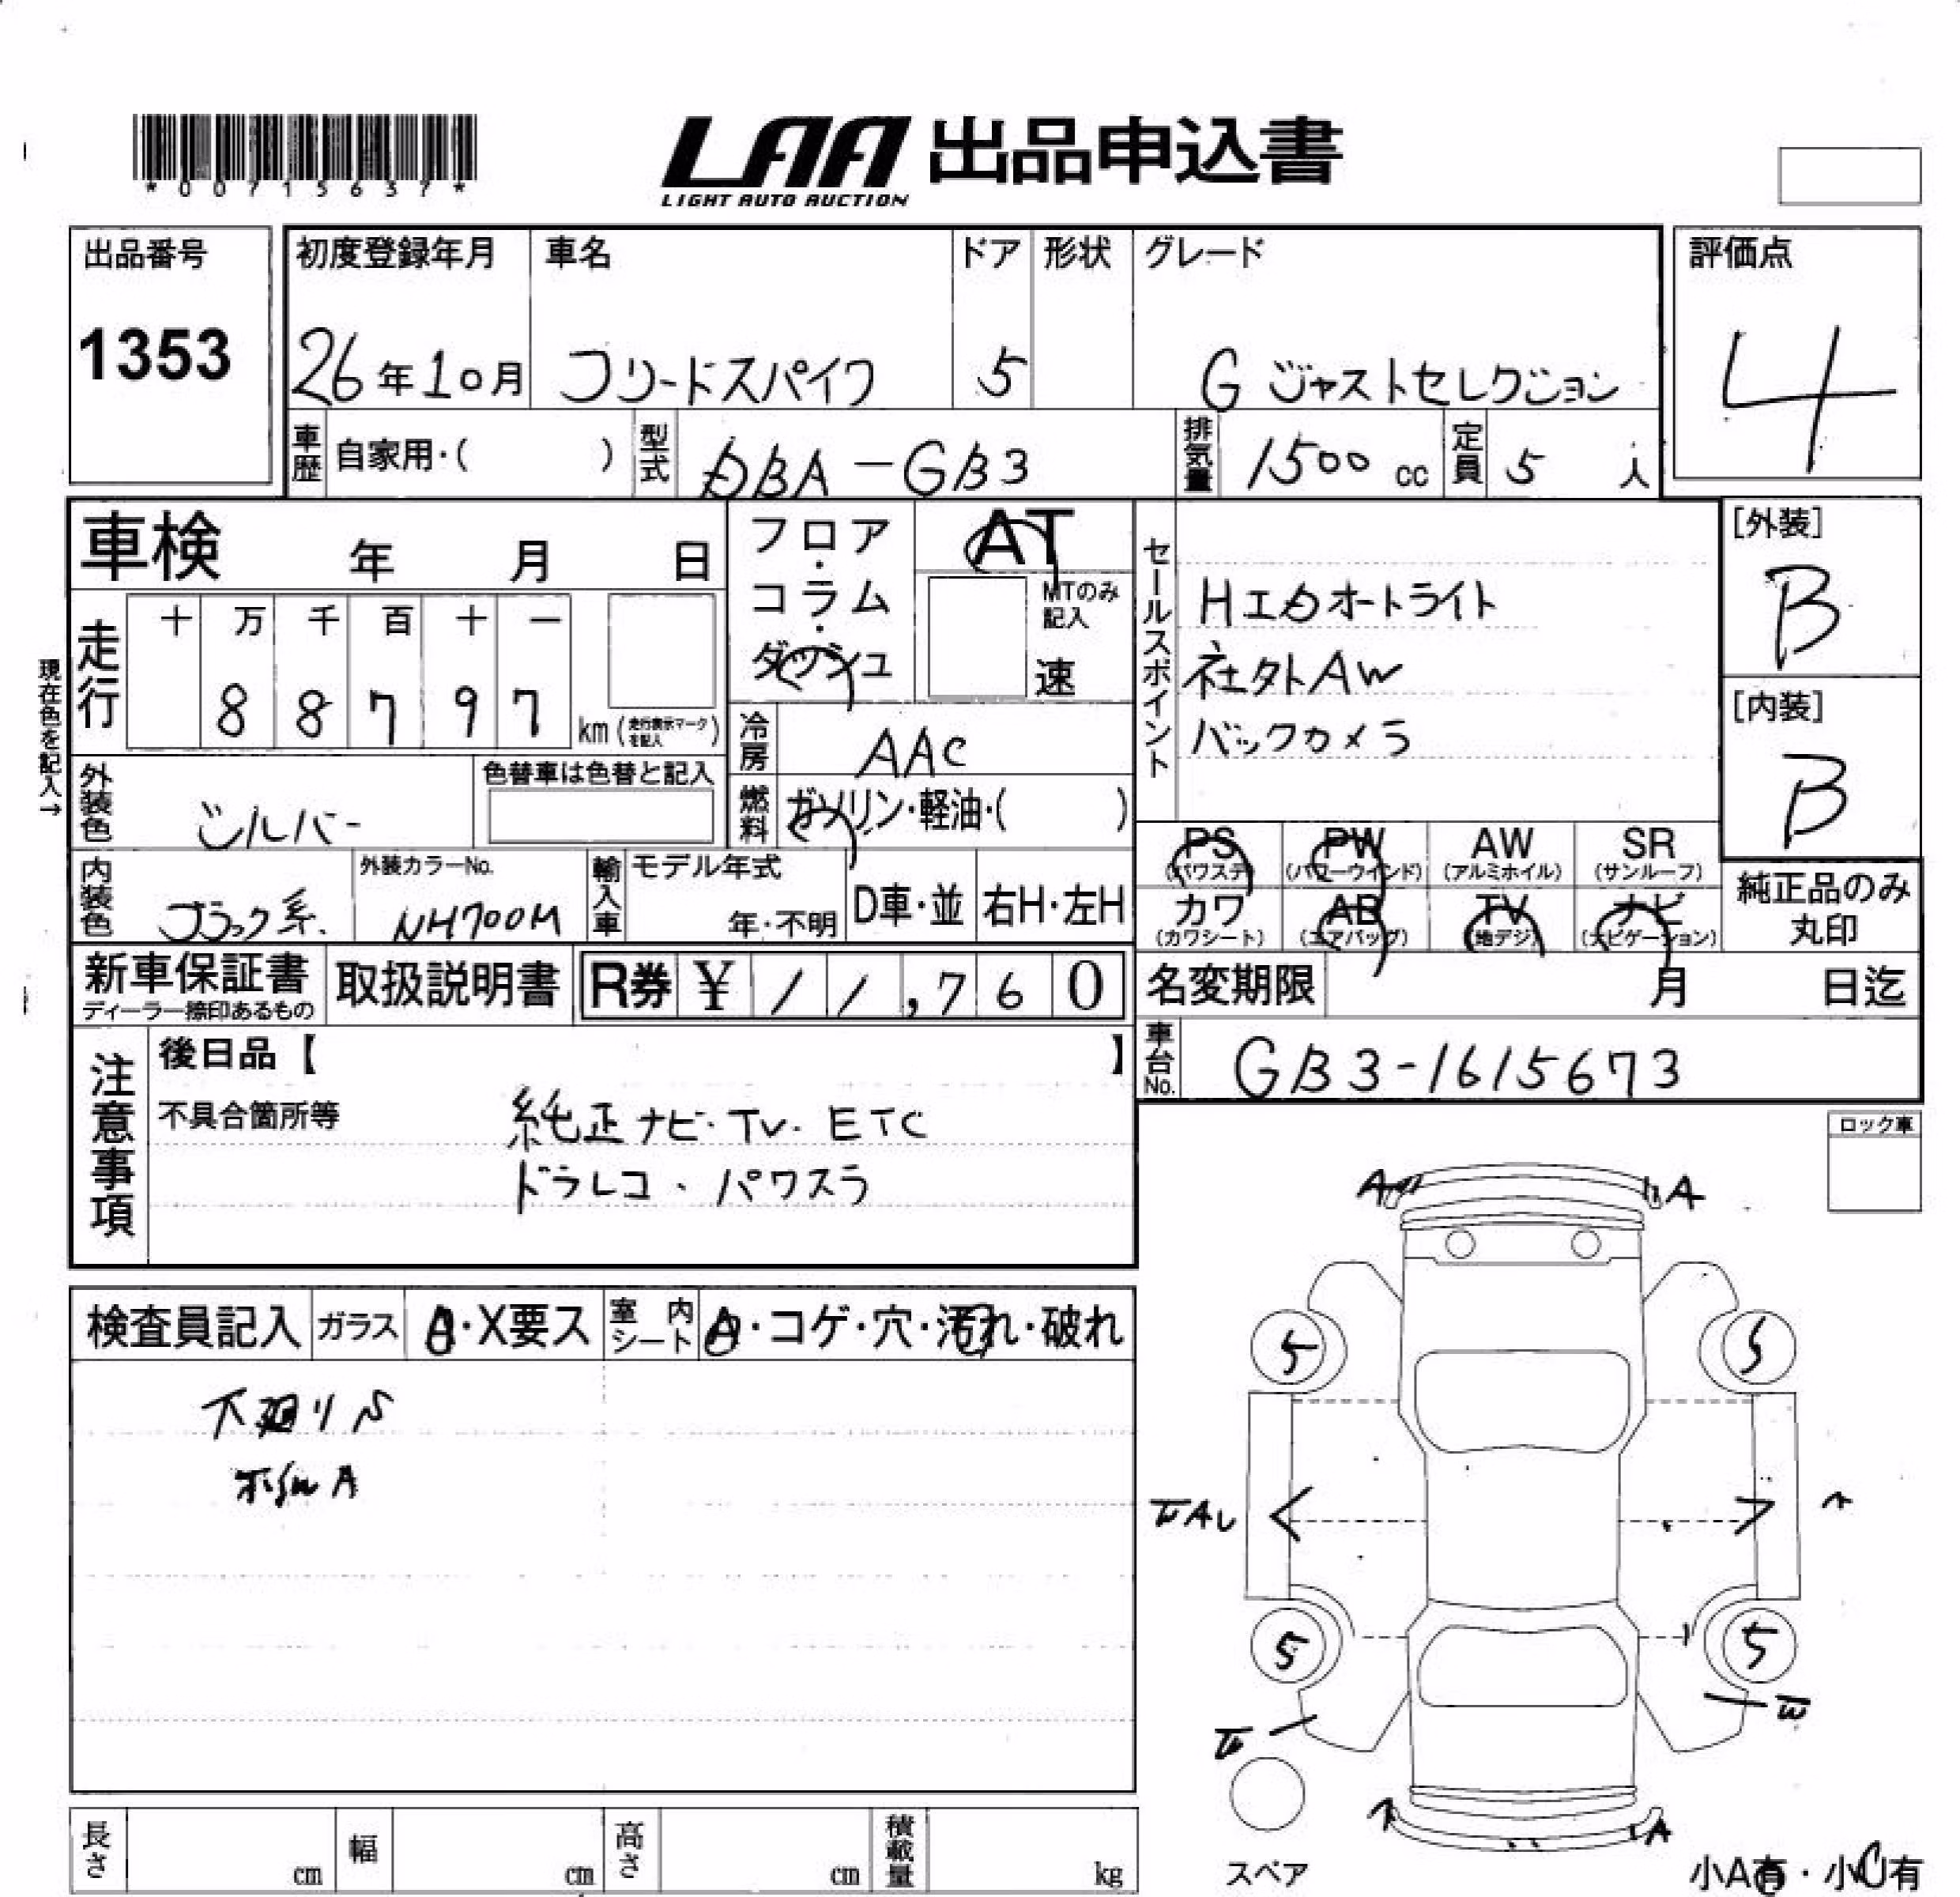 *00715637*
LAA 出品申込書
LIGHT AUTO AUCTION
出品番号
1353
初度登録年月
26年10月
車名
フリードスパイク
ドア
5
形状
グレード
G ジャストセレクション
評価点
4
車歴 自家用・( )
型式 DBA-GB3
排気量 1500 cc
定員 5 人
車検 年 月 日
走行
十 万 千 百 十 一
8 8 7 9 7
km (走行表示マークを記入)
現在色を記入→
外装色 シルバー
色替車は色替と記入
内装色 ブラック系.
外装カラーNo.
NH700M
輸入車
モデル年式
年・不明
D車・並
右H・左H
フロア・コラム・ダッシュ
AT
MTのみ記入
速
冷房 AAC
燃料 ガソリン・軽油・( )
セールスポイント
HIDオートライト
社外AW
バックカメラ
[外装]
B
[内装]
B
PS (パワステ)
PW (パワーウインド)
AW (アルミホイル)
SR (サンルーフ)
カワ (カワシート)
AB (エアバッグ)
TV (地デジ)
ナビ (ナビゲーション)
純正品のみ丸印
新車保証書
ディーラー捺印あるもの
取扱説明書
R券 ¥ 11,760
名変期限 月 日迄
車台No. GB3-1615673
注意事項
後日品【 】
不具合箇所等
純正ナビ・TV・ETC
ドラレコ・パワスラ
ロック車
検査員記入
ガラス
・X要ス
室内シート
・コゲ・穴・汚れ・破れ
下廻りS
A
A A
5 5
5 5
A
スペア
小A有・小U有
長さ cm
幅 cm
高さ cm
積載量 kg